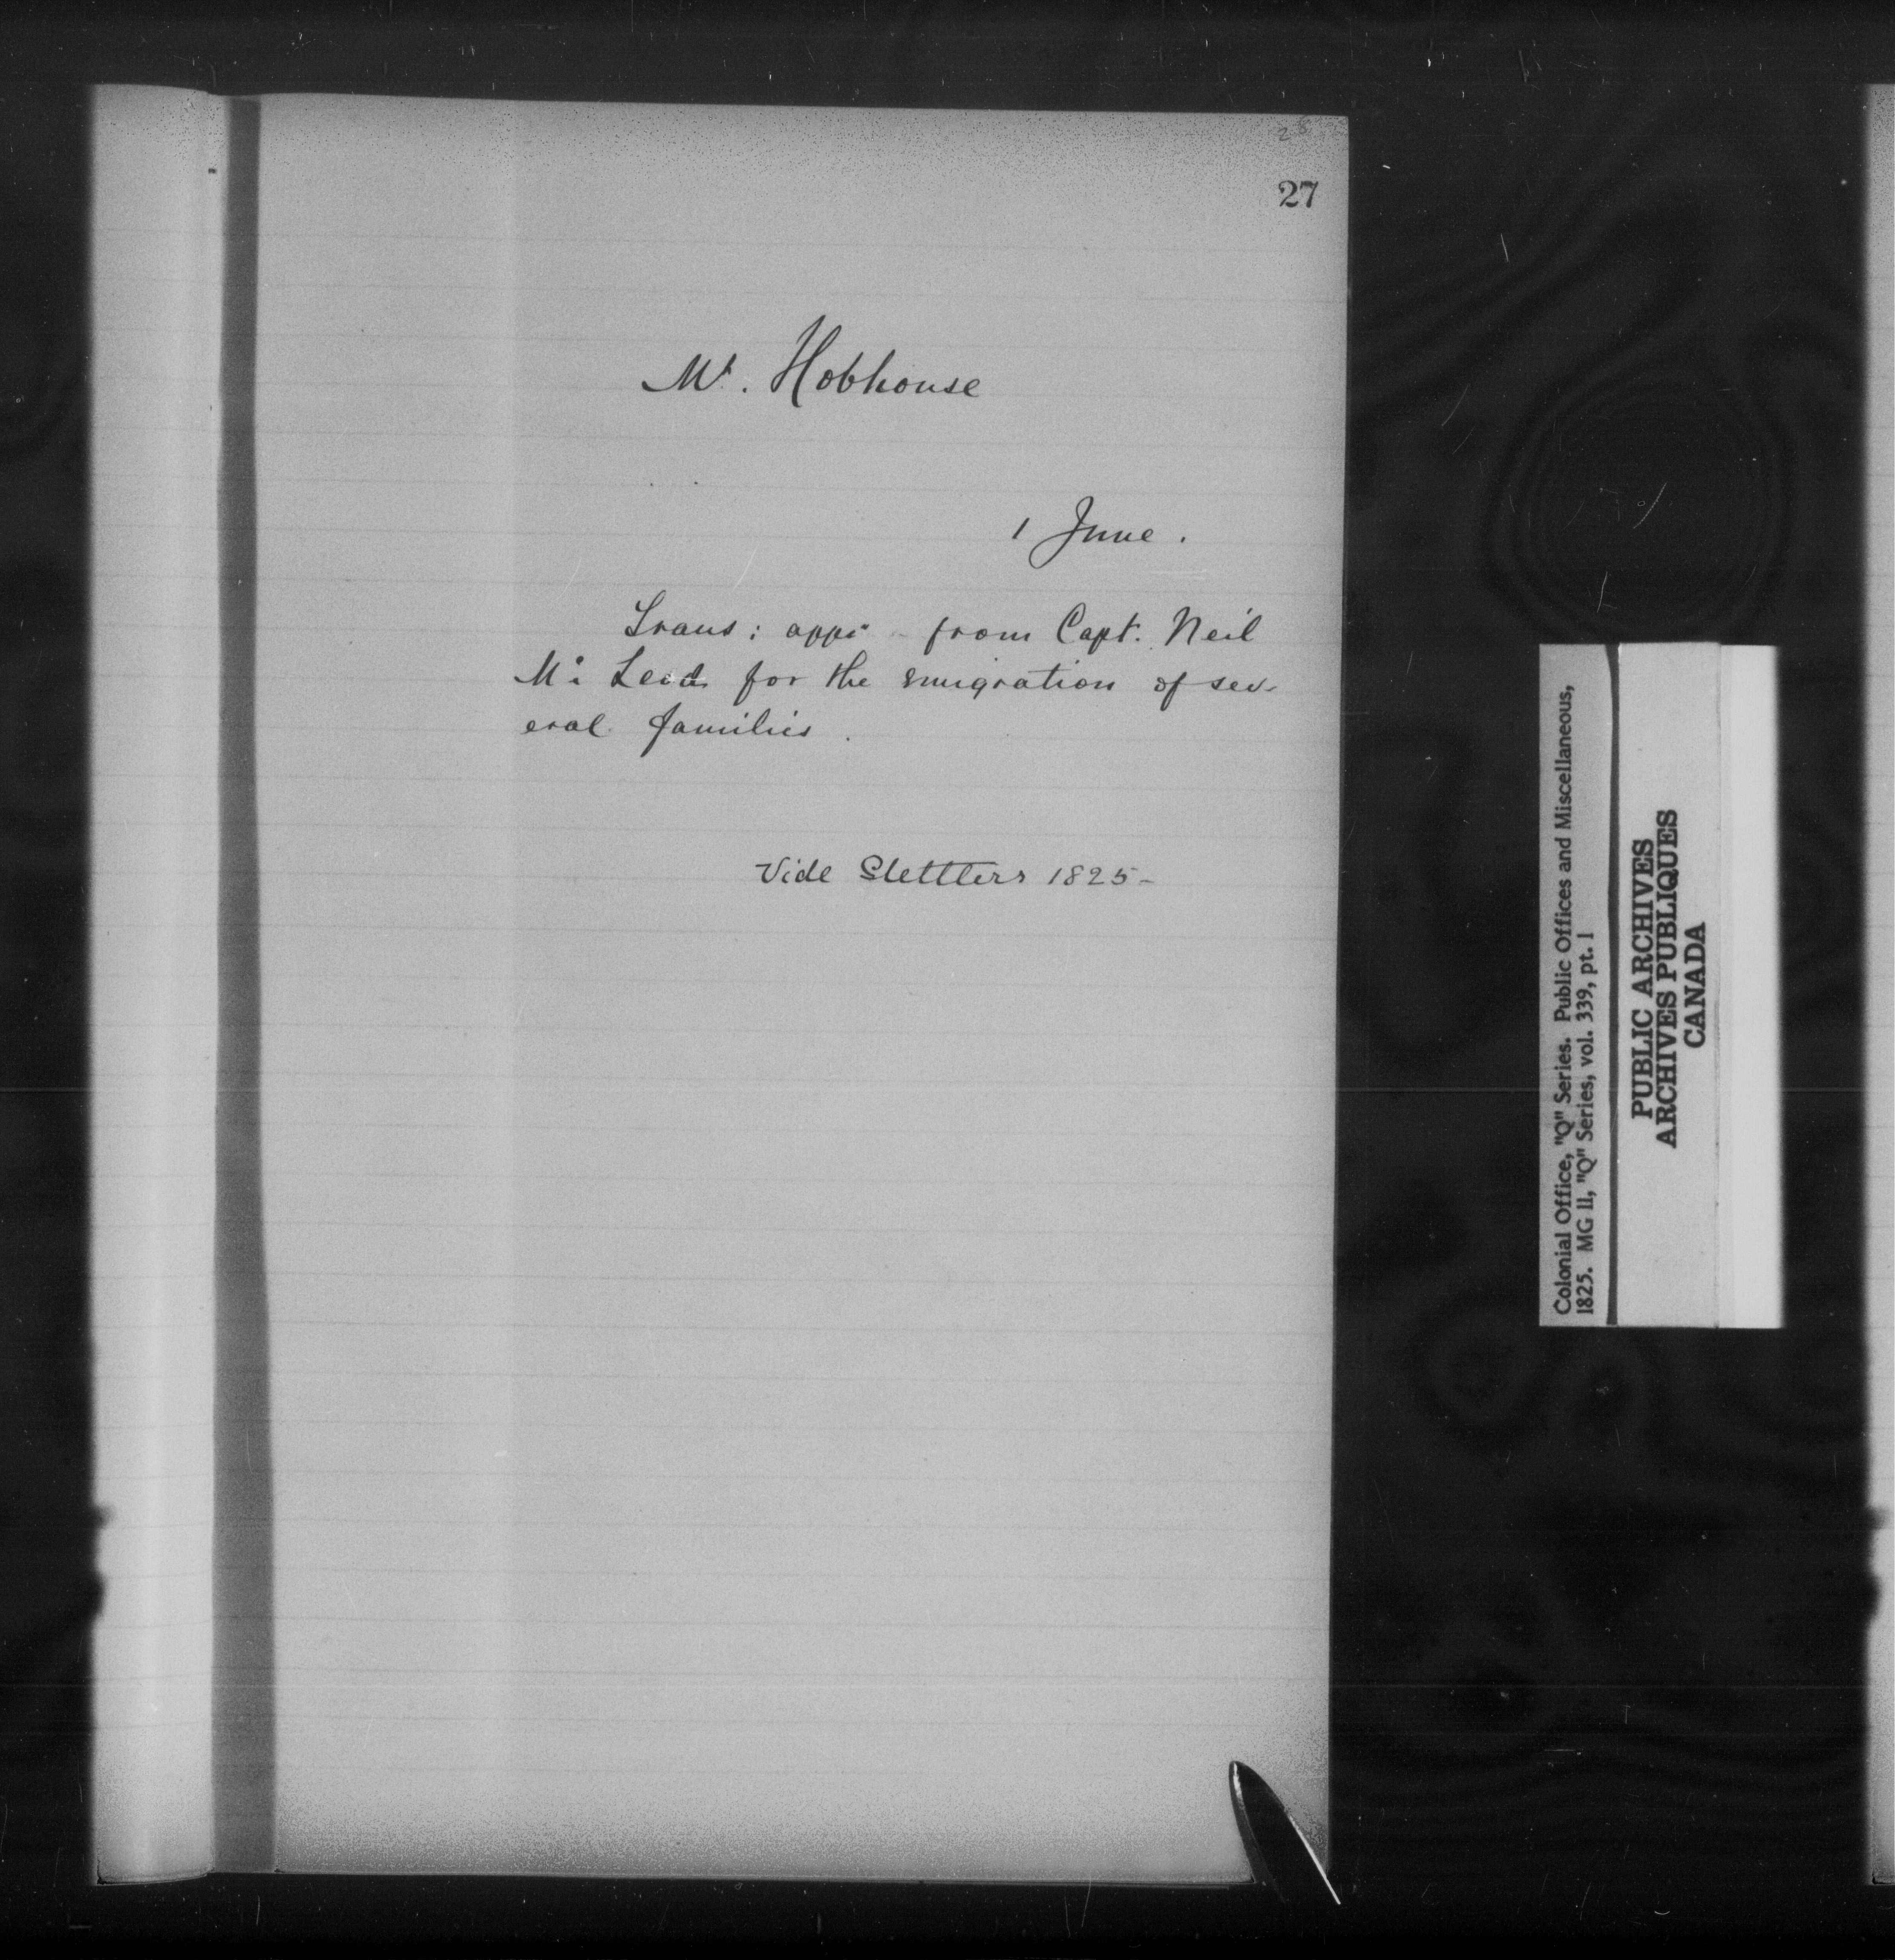 28
27
Mr. Hobhouse
1 June.
Trans: appn from Capt. Neil
Mc Leod for the emigration of sev-
eral families.
Vide Settlers 1825-
Colonial Office, "Q" Series. Public Offices and Miscellaneous,
1825. MG 11, "Q" Series, vol. 339, pt. 1
PUBLIC ARCHIVES
ARCHIVES PUBLIQUES
CANADA